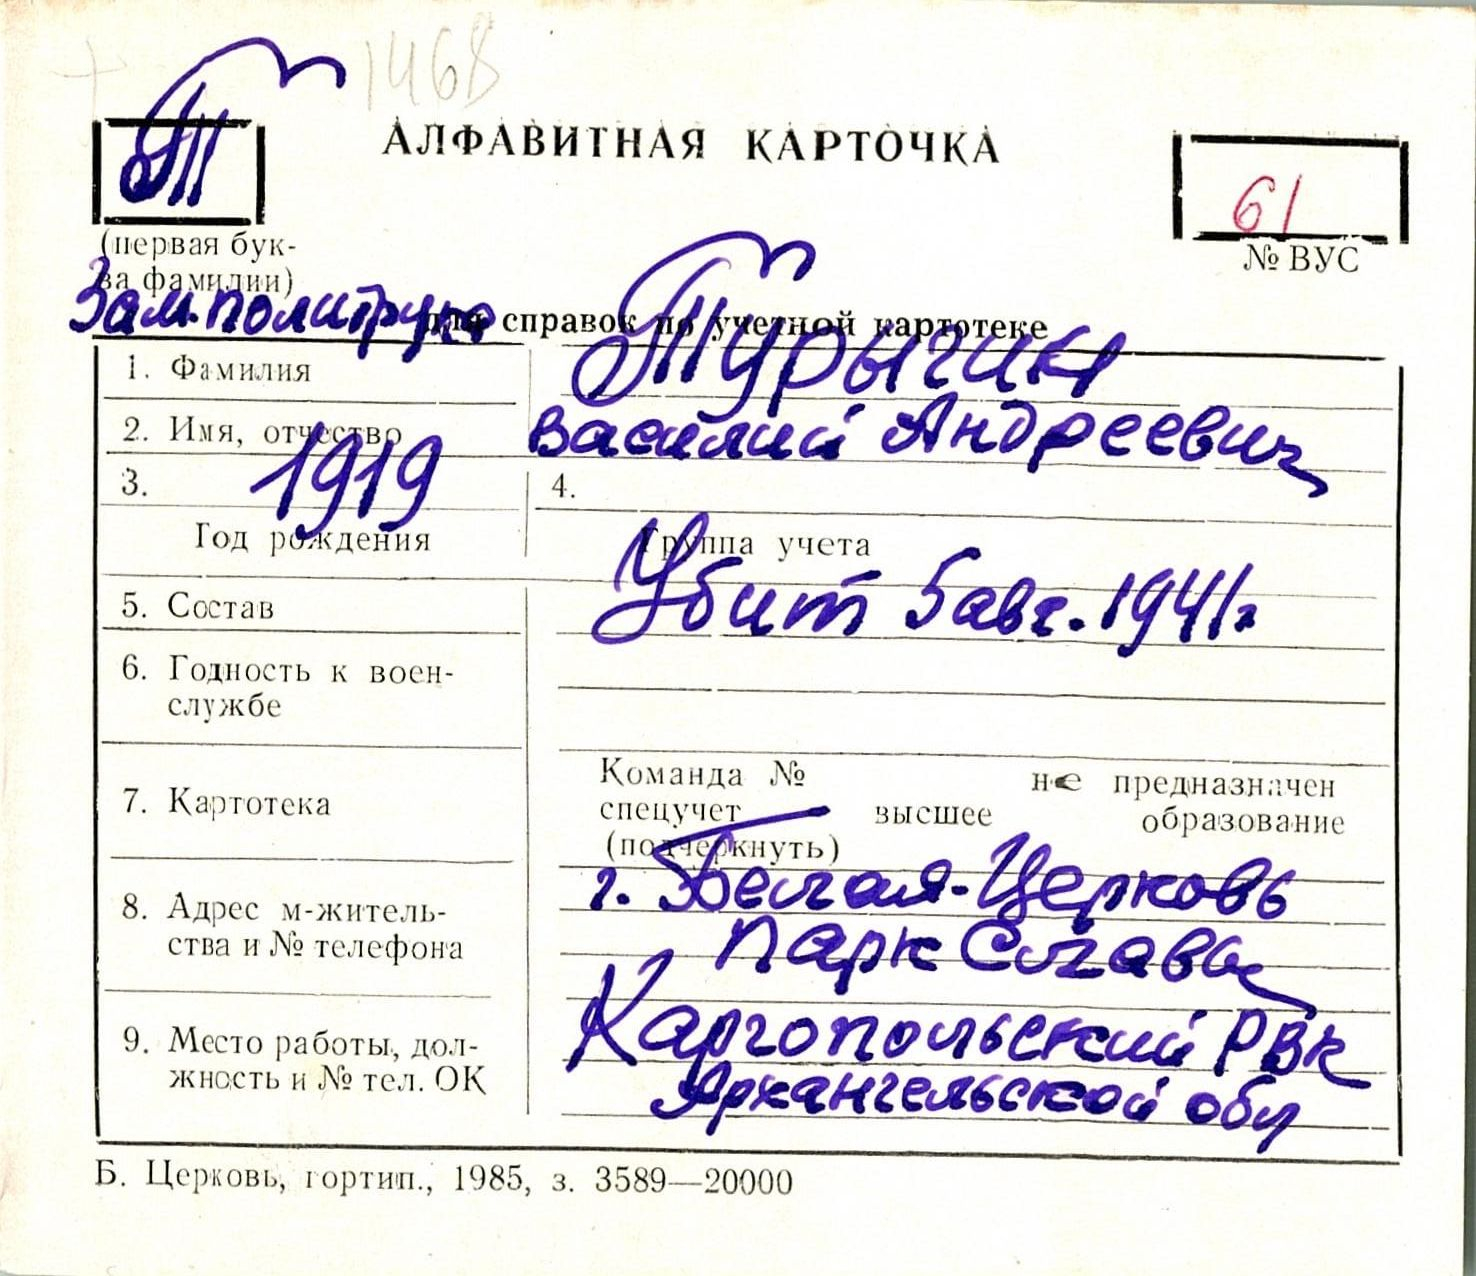 1468
Т
АЛФАВИТНАЯ КАРТОЧКА
61
(первая бук-
ва фамилии)
№ ВУС
Зам. политрука
для справок по учетной картотеке
1. Фамилия
Турыгин
2. Имя, отчество
Василий Андреевич
3. 1919
4.
Год рождения
Группа учета
5. Состав
Убит 5 авг. 1941г.
6. Годность к воен-
службе
7. Картотека
Команда № не предназначен
спецучет высшее образование
(подчеркнуть)
8. Адрес м-житель-
ства и № телефона
г. Белая-Церковь
Парк Славы
9. Место работы, дол-
жность и № тел. ОК
Каргопольский РВК
Архангельской обл
Б. Церковь, гортип., 1985, з. 3589—20000